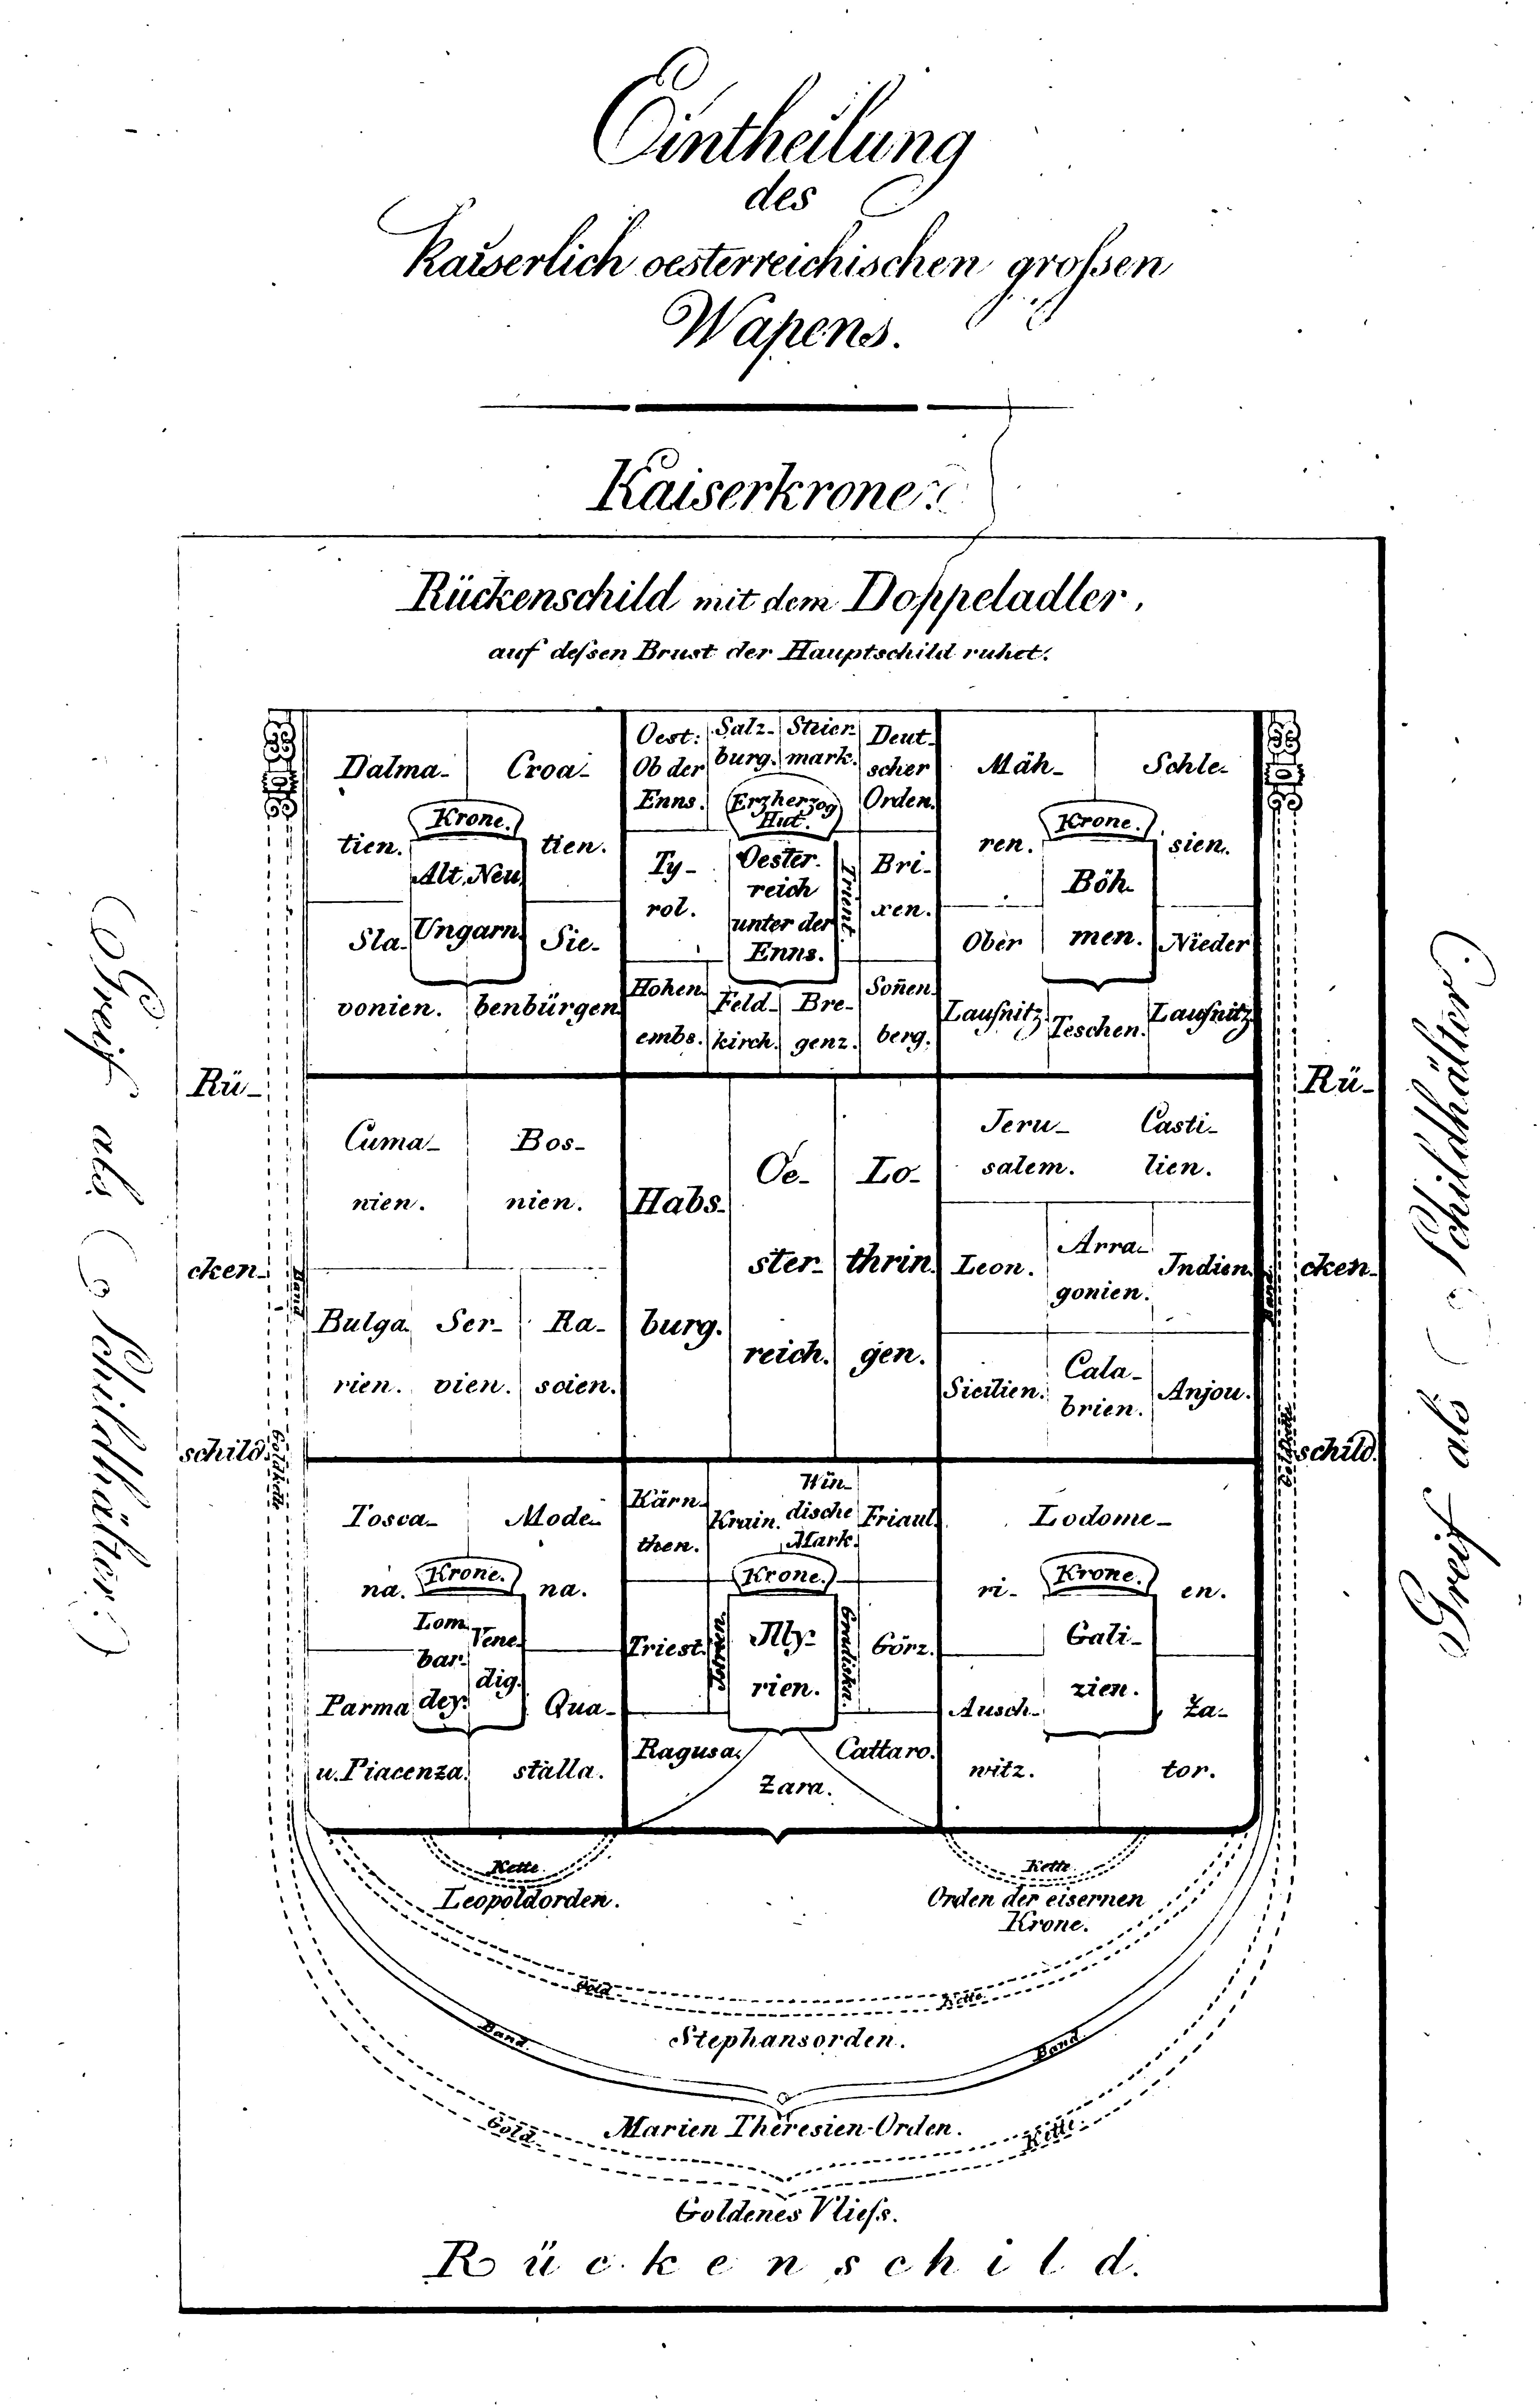 Eintheilung
des
Kaiserlich oesterreichischen grosſen
Wapens.
Kaiserkrone.
Rückenschild mit dem Doppeladler,
auf deſsen Brust der Hauptschild ruhet.
Dalma-
tien.
Croa-
tien.
Krone.
Alt, Neu
Ungarn.
Sla-
vonien.
Sie-
benbürgen.
Oest:
Ob der
Enns.
Salz-
burg.
Steier-
mark.
Deut-
scher
Orden.
Erzherzog
Hut.
Ty-
rol.
Oester-
reich
unter der
Enns.
Trient.
Bri-
xen.
Hohen-
embs.
Feld-
kirch.
Bre-
genz.
Soñen-
berg.
Mäh-
ren.
Schle-
sien.
Krone.
Böh-
men.
Ober
Lauſnitz
Teschen.
Nieder
Lauſnitz
Cuma-
nien.
Bos-
nien.
Bulga-
rien.
Ser-
vien.
Ra-
scien.
Habs-
burg.
Oe-
ster-
reich.
Lo-
thrin-
gen.
Jeru-
salem.
Casti-
lien.
Leon.
Arra-
gonien.
Indien.
Sicilien.
Cala-
brien.
Anjou.
Tosca-
na.
Mode-
na.
Krone.
Lom-
bar-
dey.
Vene-
dig.
Parma
u. Piacenza.
Qua-
stalla.
Kärn-
then.
Krain.
Win-
dische
Mark.
Friaul.
Krone.
Triest.
Istrien.
Illy-
rien.
Gradiska.
Görz.
Ragusa.
Zara.
Cattaro.
Lodome-
ri-
en.
Krone.
Gali-
zien.
Ausch-
witz.
Za-
tor.
Greif als Schildhälter.
Rü-
cken-
schild.
Band
Goldkette
Rü-
cken-
schild.
Band
Goldkette
Greif als Schildhälter.
Kette.
Leopoldorden.
Kette.
Orden der eisernen
Krone.
Gold-
Kette.
Stephansorden.
Band.
Band.
Marien Theresien-Orden.
Gold-
Kette.
Goldenes Vlieſs.
Rückenschild.